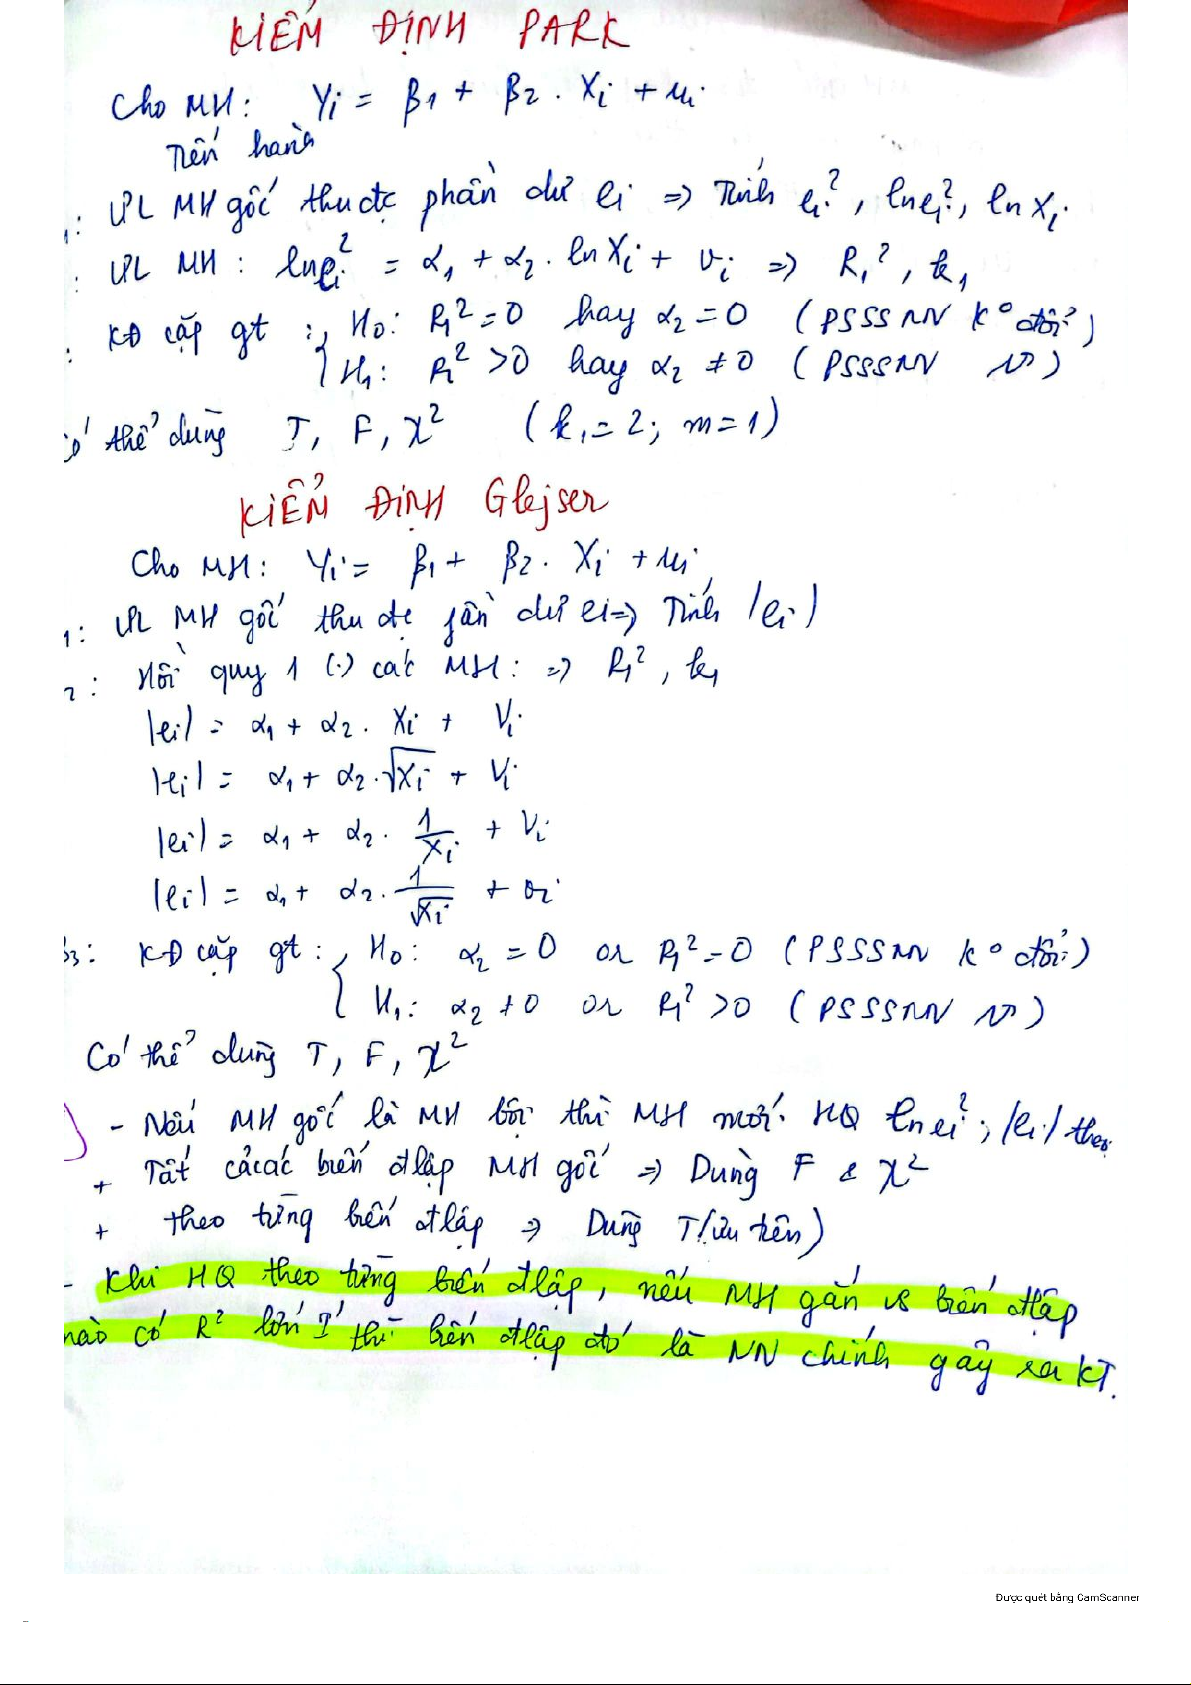 KIỂM ĐỊNH PARK
Cho MH: Yi = β1 + β2 . Xi + ui
Tiến hành
1: ƯL MH gốc thu đc phần dư ei => Tính ei², lnei², lnXi
: ƯL MH : lnei² = α1 + α2 . lnXi + vi => R1², k1
: KĐ cặp gt : { H0: R1² = 0 hay α2 = 0 (PSSSNN k° đổi)
H1: R1² > 0 hay α2 ≠ 0 (PSSSNN )
Có thể dùng T, F, χ² (k1 = 2; m = 1)
KIỂM ĐỊNH Glejser
Cho MH: Yi = β1 + β2 . Xi + ui
1: ƯL MH gốc thu đc fần dư ei => Tính |ei|
2: Hồi quy 1 (.) các MH: => R1², k1
|ei| = α1 + α2 . Xi + Vi
|ei| = α1 + α2 . √Xi + Vi
|ei| = α1 + α2 . 1/Xi + Vi
|ei| = α1 + α2 . 1/√Xi + vi
B3: KĐ cặp gt : { H0: α2 = 0 or R1² = 0 (PSSSNN k° đổi)
H1: α2 ≠ 0 or R1² > 0 (PSSSNN )
Có thể dùng T, F, χ²
- Nếu MH gốc là MH bội thì MH mới: HQ lnei²; |ei| theo
+ Tất cả các biến đlập MH gốc => Dùng F & χ²
+ theo từng biến đlập => Dùng T (ưu tiên)
- Khi HQ theo từng biến đlập, nếu MH gắn vs biến đlập
nào có R² lớn I thì biến đlập đó là NN chính gây ra KT.
Được quét bằng CamScanner